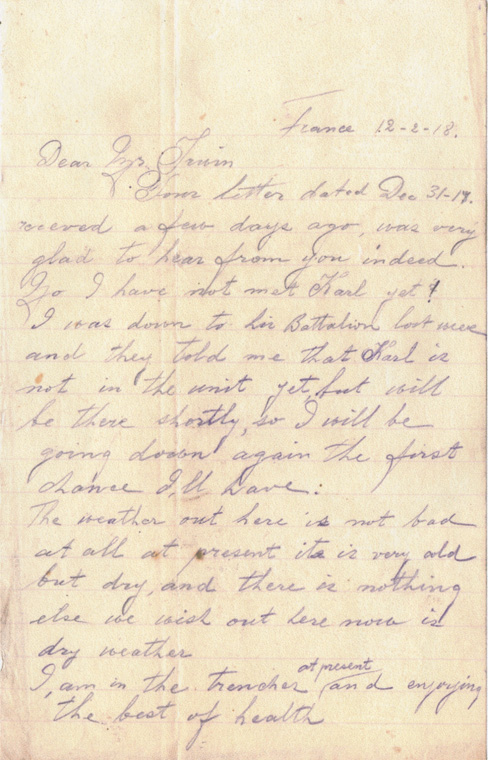 France 12-2-18.
Dear Mr. Irwin
Your letter dated Dec 31-17.
receved a few days ago, was very
glad to hear from you indeed.
No I have not met Karl yet!
I was down to his Battalion last week
and they told me that Karl is
not in the unit yet, but will
be there shortly, so I will be
going down again the first
chance I,ll have:
The weather out here is not bad
at all at present its is very cold
but dry, and there is nothing
else we wish out here now is
dry weather
I, am in the trenches at present and enjoying
the best of health